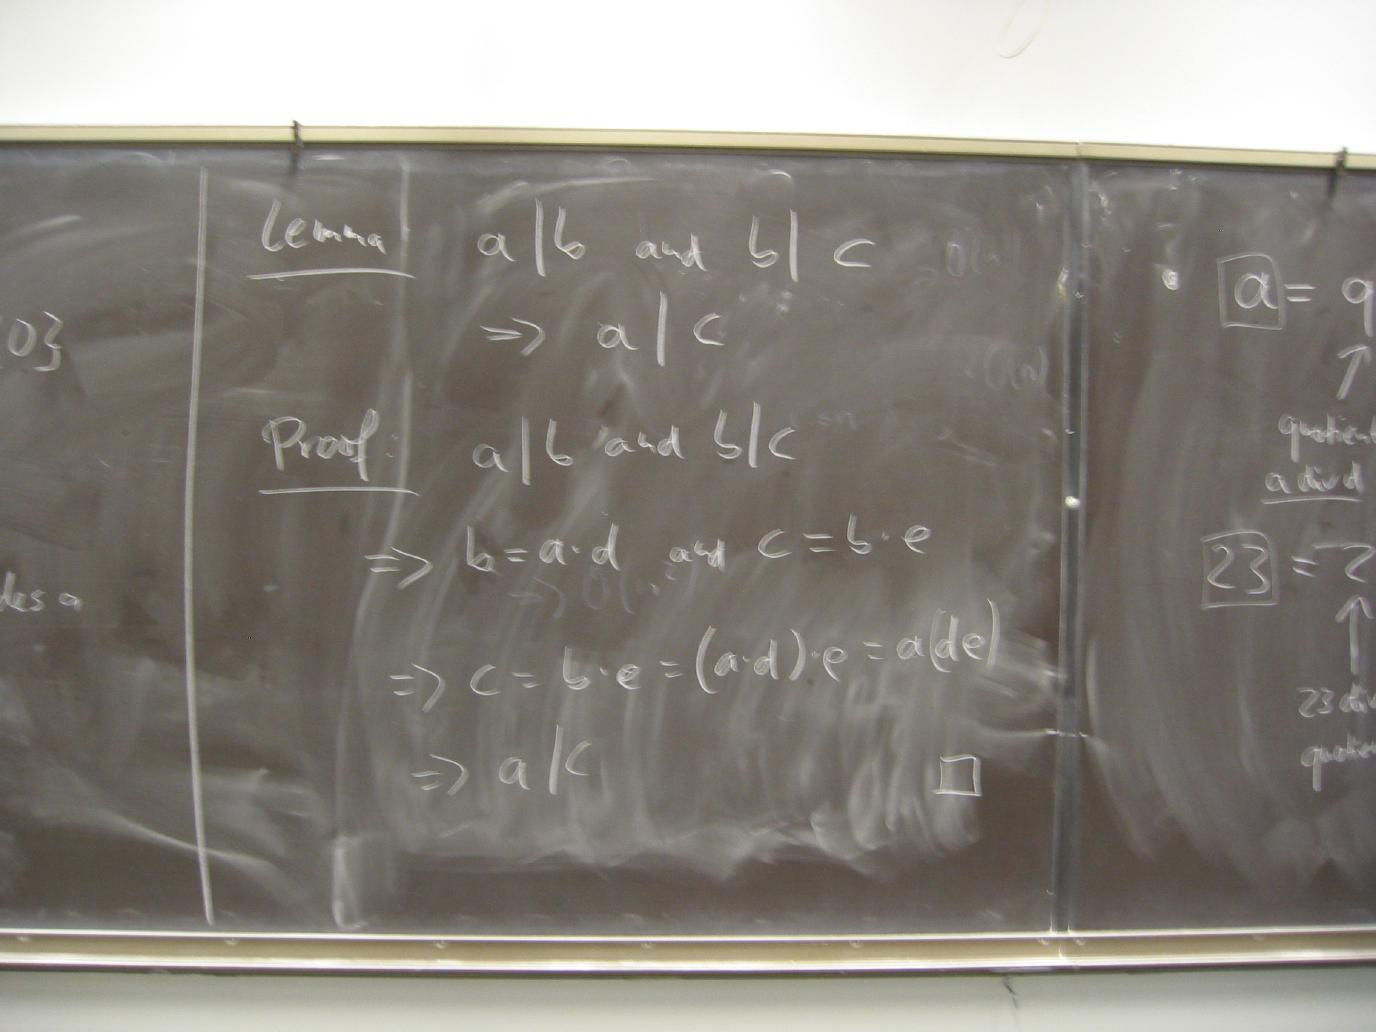 0}
des a
Lemma a|b and b|c
=> a|c
Proof: a|b and b|c
=> b = a·d and c = b·e
=> c = b·e = (a·d)·e = a(de)
=> a|c □
a = q
↑
quotient
a div d
23 = 7
↑
23 div